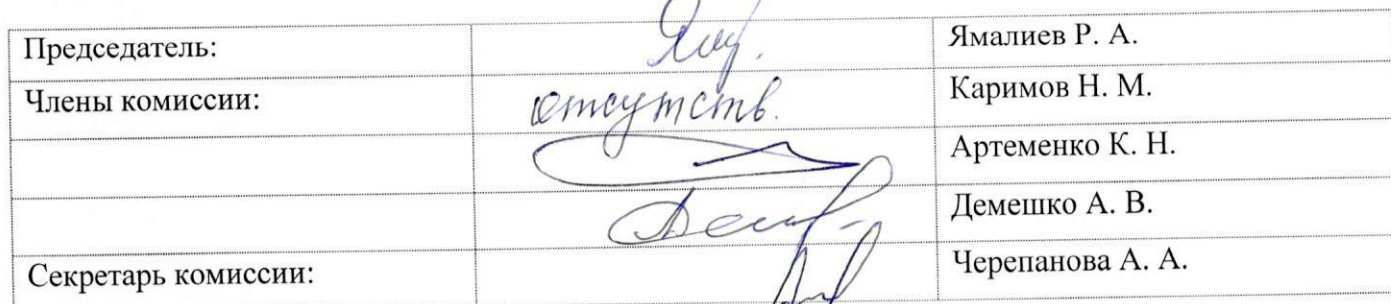 Председатель: Ямалиев Р. А.
Члены комиссии: отсутств. Каримов Н. М.
Артеменко К. Н.
Демешко А. В.
Секретарь комиссии: Черепанова А. А.